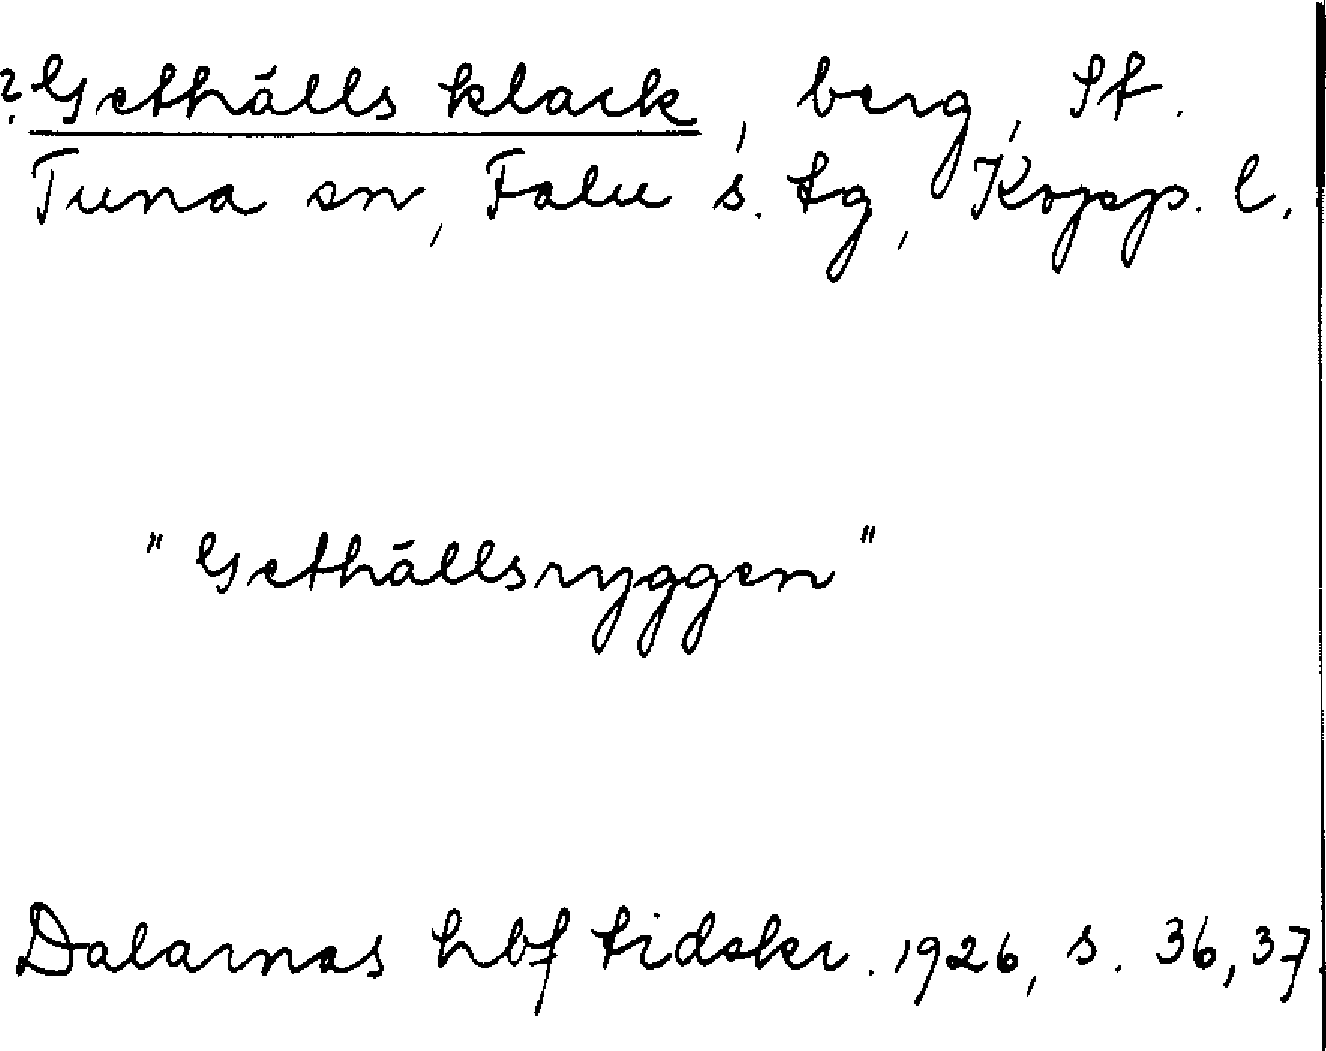 ? Gethålls klack, berg, St.
Tuna sn, Falu s. tg, Kopp. l.
"Gethållsryggen"
Dalarnas hbf tidskr. 1926, s. 36, 37.